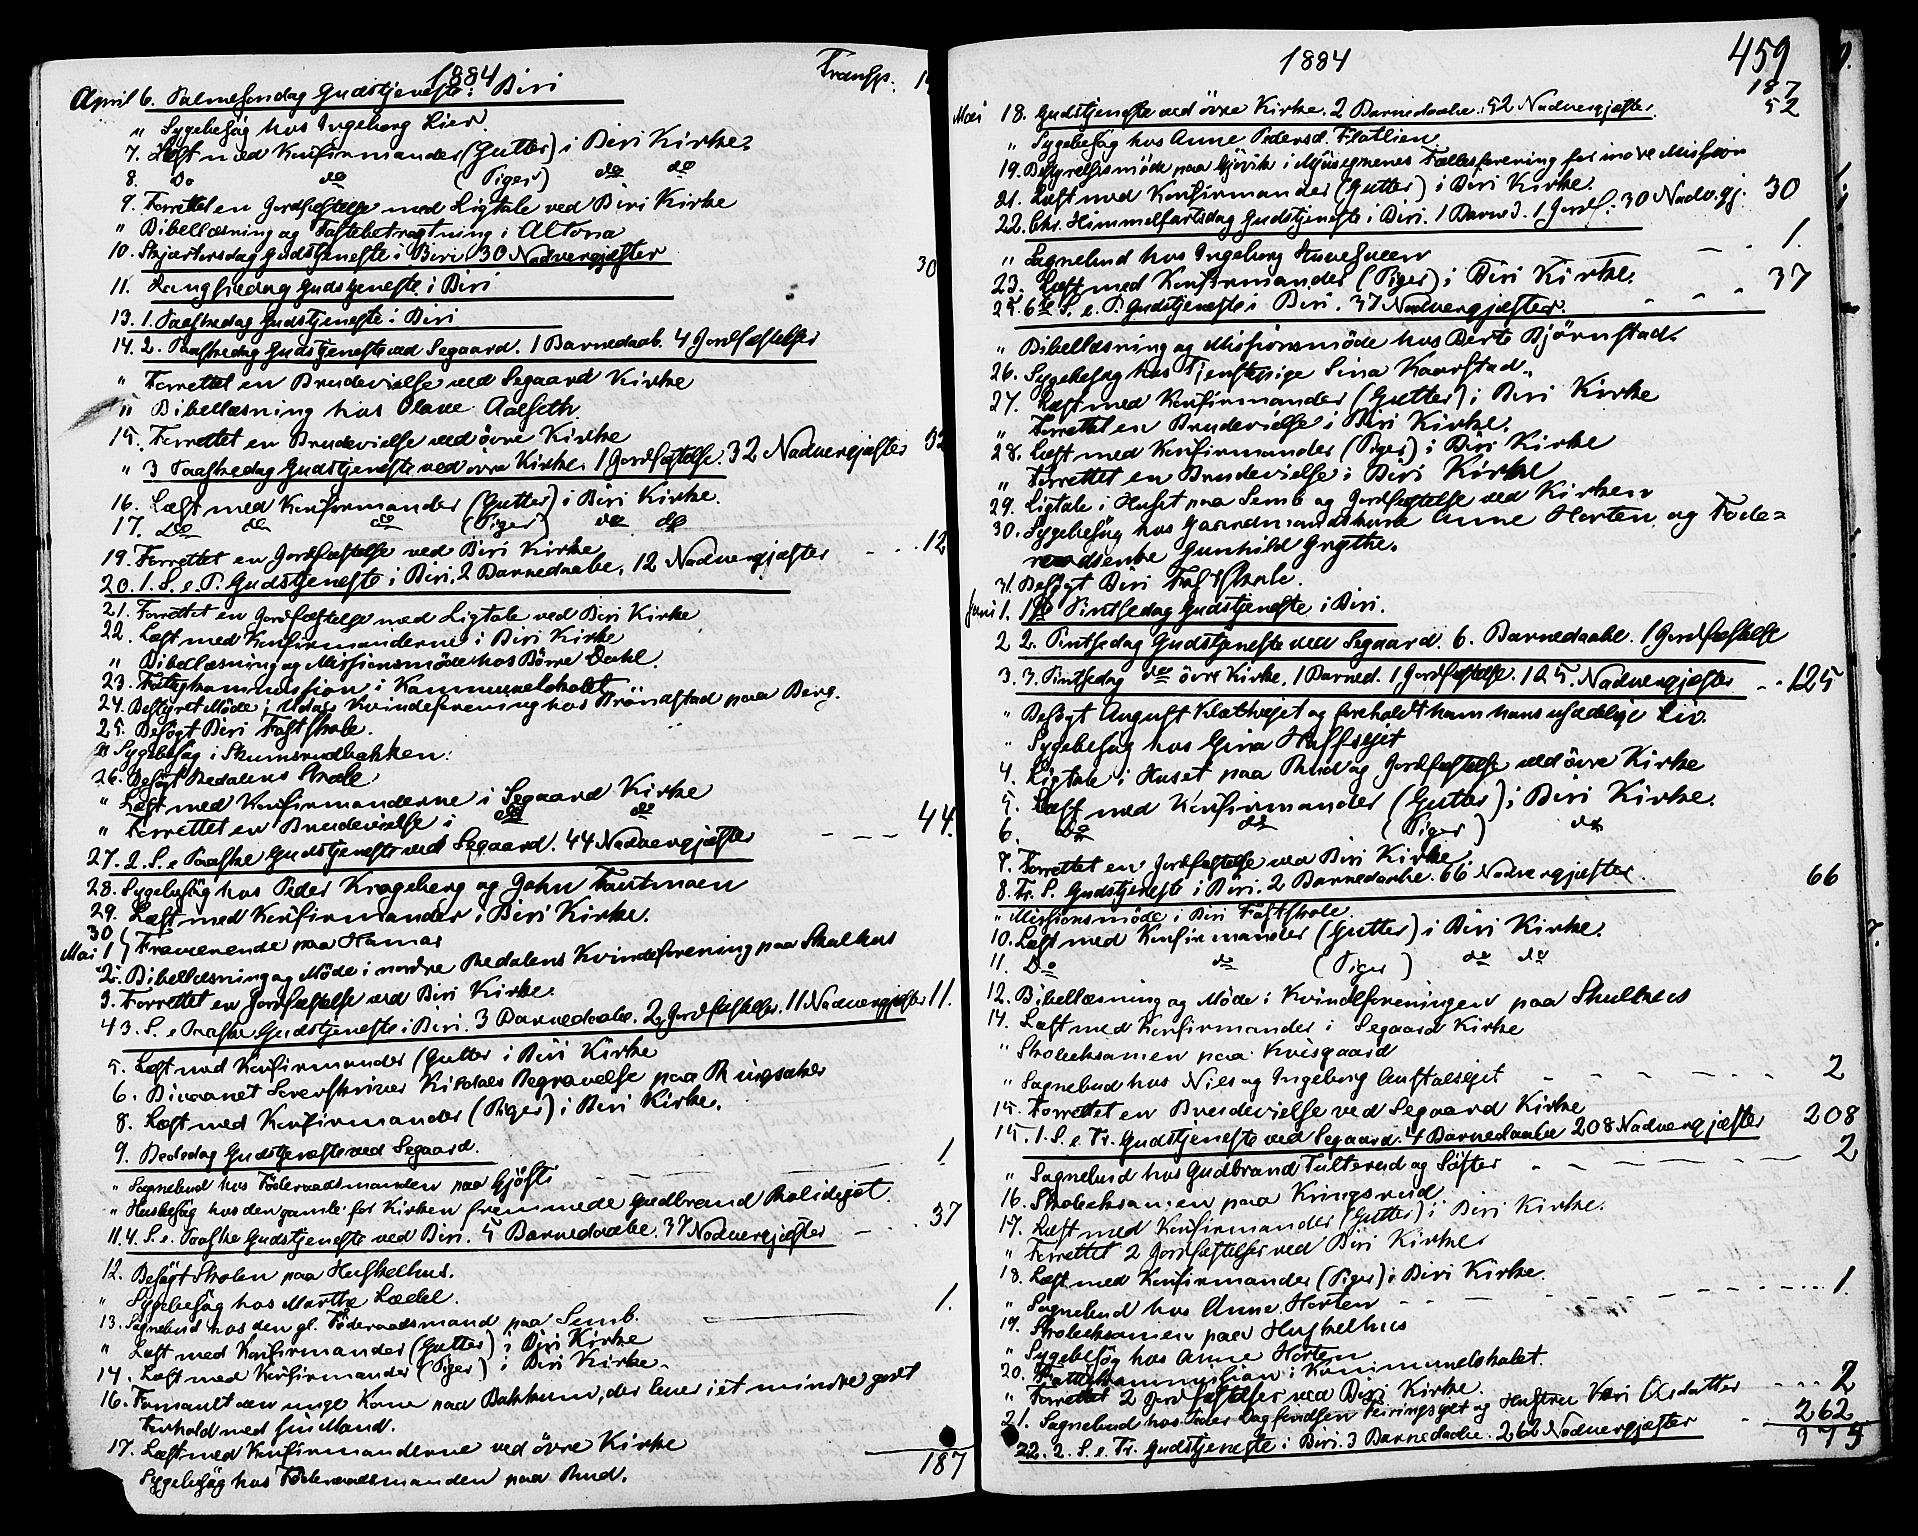 1884 Transp.
April 6. Palmesøndag Gudstjeneste i Biri
" Sygebesøg hos Ingeborg Lier.
7. Læst med Konfirmander (Gutter) i Biri Kirke.
8. Do do (Piger) do do
9. Forrettet en Jordfæstelse med Ligtale ved Biri Kirke
" Bibellæsning og Fastebetragtning i Altona
10. Skjærtorsdag Gudstjeneste i Biri 30 Nadvergjæster 30
11. Langfredag Gudstjeneste i Biri
13. 1. Paaskedag Gudstjeneste i Biri
14. 2. Paaskedag Gudstjeneste ved Segaard. 1 Barnedaab. 4 Jordfæstelser
" Forrettet en Brudevielse ved Segaard Kirke
" Bibellæsning hos Olave Aalseth.
15. Forrettet en Brudevielse ved øvre Kirke
" 3 Paaskedag Gudstjeneste ved øvre Kirke. 1 Jordfæstelse. 32 Nadvergjæster 32
16. Læst med Konfirmander (Gutter) i Biri Kirke.
17. do do do (Piger) do do
19. Forrettet en Jordfæstelse ved Biri Kirke
20. 1. S. e. P. Gudstjeneste i Biri. 2 Barnedaabe, 12 Nadvergjæster 12
21. Forrettet en Jordfæstelse med Ligtale ved Biri Kirke
22. Læst med Konfirmanderne i Biri Kirke
" Bibellæsning og Missionsmøde hos Børre Dahl.
23. Fattigkommission i Kommunelokalet
24. Bestyret Møde i Kvindeforening hos Brøndstad paa Berg.
25. Besøgt Biri Fastskole.
" Sygebesøg i Skumsrudbakken.
26. Besøgt Redalens Skole
" Læst med Konfirmanderne i Segaard Kirke
" Forrettet en Brudevielse i do do
27. 2. S. e Paaske Gudstjeneste ved Segaard. 44 Nadvergjæster 44.
28. Sygebesøg hos Peder Krageberg og John Tautmoen
29. Læst med Konfirmander i Biri Kirke.
30
Mai 1 } Fraværende paa Hamar
2. Bibellæsning og Møde i nordre Redalens Kvindeforening paa Skolhus
3. Forrettet en Jordfæstelse ved Biri Kirke.
4 3. S. e Paaske Gudstjeneste i Biri. 3 Barnedaabe. 2 Jordfæstelser. 11 Nadvergjæster 11.
5. Læst med Konfirmander (Gutter i Biri Kirke
6. Bivaanet Sorenskriver Kildals Begravelse paa Ringsaker
8. Læst med Konfirmander (Piger) i Biri Kirke.
9. Bededag Gudstjeneste ved Segaard.
" Sognebud hos Føderaadsmanden paa Gjøsti 1
" Husbesøg hos den gamle for Kirken fremmede Gudbrand
11. 4. S. e. Paaske Gudstjeneste ved Biri. 5 Barnedaabe. 37 Nadvergjæster 37
12. Besøgt Skolen paa Huskelhus.
" Sygebesøg hos Marthe Lædel.
13. Sognebud hos den gl. Føderaadsmand paa Semb. 1.
" Læst med Konfirmander (Gutter) i Biri Kirke
14. Læst med Konfirmander (Piger) i Biri Kirke.
16. Formanet den unge Kone paa Bakkum, der lever i et mindre godt
Forhold med sin Mand.
17. Læst med Konfirmanderne ved øvre Kirke
Sygebesøg hos Føderaadsmanden paa Rud. 187
1884 459
187
Mai 18. Gudstjeneste ved øvre Kirke. 2 Barnedaabe. 52 Nadvergjæster. 52
" Sygebesøg hos Anne Pedersd. Flatlien
19. Bestyrelsesmøde paa Gjøvik i Mjøsegnenes Fællesforening for indre Mission
21. Læst med Konfirmander (Gutter) i Biri Kirke.
22. Chr. Himmelfartsdag Gudstjeneste i Biri. 1 Barnd. 1 Jordf. 30 Nadv.gj. 30
" Sognebud hos Ingeborg 1.
23. Læst med Konfirmander (Piger) i Biri Kirke.
25. 6te S. e. P. Gudstjeneste i Biri. 37 Nadvergjæster. 37
" Bibellæsning og Missionsmøde hos Berte Bjørnstad.
26. Sygebesøg hos Tjenstepige Sina Kaarstad.
27. Læst med Konfirmander (Gutter) i Biri Kirke
" Forrettet en Brudevielse i Biri Kirke.
28. Læst med Konfirmander (Piger) i Biri Kirke
" Forrettet en Brudevielse i Biri Kirke
29. Ligtale i Huset paa Semb og Jordfæstelse ved Kirken
30. Sygebesøg hos Gaardmandskone Anne Horten og Føde=
raadsenke Gunhild Grythe.
31. Besøgt Biri Fastskole.
Juni 1. 1ste Pintsedag Gudstjeneste i Biri.
2 2. Pintsedag Gudstjeneste ved Segaard. 6. Barnedaabe. 1 Jordfæstelse
3. 3. Pintsedag do øvre Kirke. 1 Barned. 1 Jordfæstelse. 125. Nadvergjæster 125
" Besøgt August Klæthejet og foreholdt ham hans usædelige Liv.
" Sygebesøg hos Gina Hoffsejet
4. Ligtale i Huset paa Rud og Jordfæstelse ved øvre Kirke
5. Læst med Konfirmander (Gutter) i Biri Kirke.
6. Do do (Piger) do
7. Forrettet en Jordfæstelse ved Biri Kirke
8. Tr. S. Gudstjeneste i Biri. 2 Barnedaabe. 66 Nadvergjæster. 66
" Missionsmøde i Biri Fastskole.
10. Læst med Konfirmander (Gutter) i Biri Kirke.
11. Do do (Piger) do do
12. Bibellæsning og Møde i Kvindeforeningen paa Skulhus
14. Læst med Konfirmander i Segaard Kirke
" Skoleeksamen paa Kvisgaard
" Sognebud hos Niels og Ingeborg Austalsejet 2
15. Forrettet en Brudevielse ved Segaard Kirke
15. 1. S. e Tr. Gudstjeneste ved Segaard. 4 Barnedaabe 208 Nadvergjæster 208
" Sognebud hos Gudbrand Tulterud og Søster 2
16. Skoleeksamen paa Kringsrud.
17. Læst med Konfirmander (Gutter) i Biri Kirke.
" Forrettet 2 Jordfæstelser ved Biri Kirke
18. Læst med Konfirmander (Piger) i Biri Kirke.
" Sognebud hos Anne Horten 1.
19. Skoleeksamen paa Huskelhus
" Sygebesøg hos Anne Horten
20. Fattigkommission i Kommunelokalet.
" Forrettet 2 Jordfæstelser ved Biri Kirke.
21. Sognebud hos Peder Dagfindsen Feiringsejet og Hustru Olsdatter 2
22. 2. S. e Tr. Gudstjeneste i Biri. 3 Barnedaabe. 262 Nadvergjæster 262
975